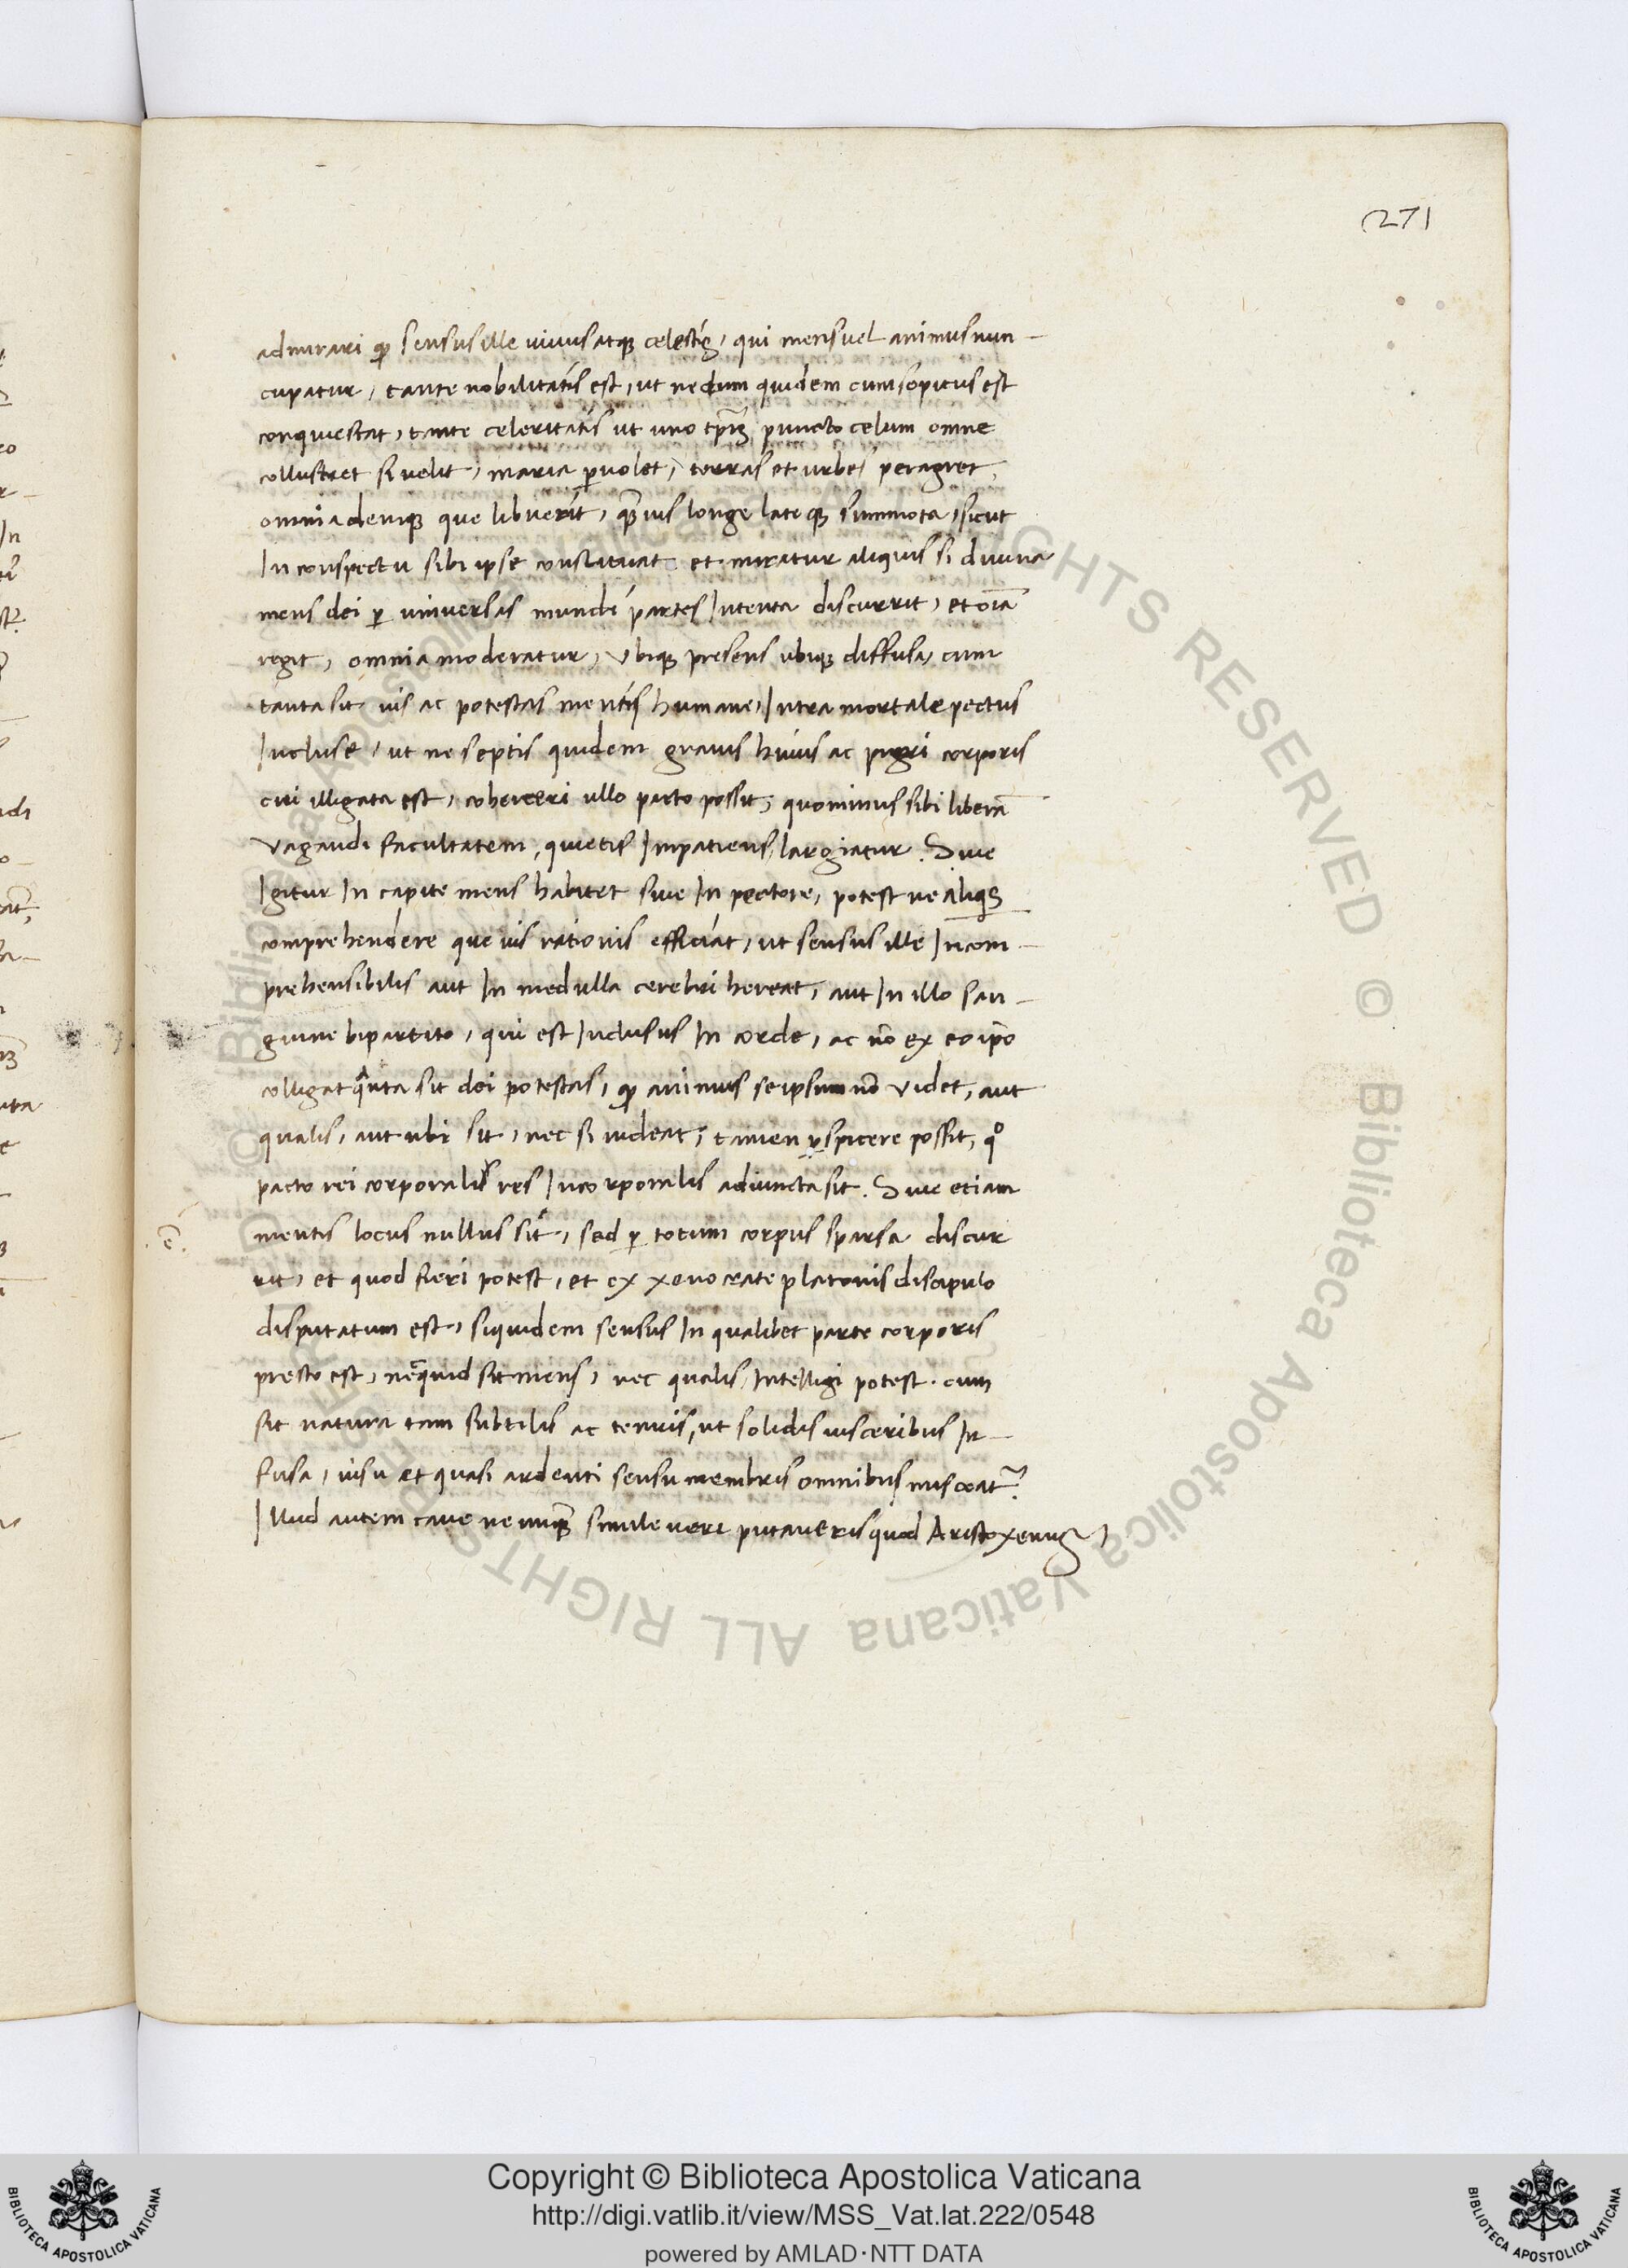 271
admirari q̃ sensus ille uiuus atq; celestis, qui mens uel animus nun-
cupatur, tante nobilitatis est, ut nedum quidem cum sopitus est
conquiescat, tante celeritatis ut uno tp̃is puncto celum omne
collustret si uelit, maria puolet, terras et urbes peragret,
omnia deniq; que libuerit, q̃uis longe lateq; summota, sicut
In conspectu sibi ipse constituat. et miratur aliquis si diuina
mens dei p uniuersas mundi partes Intenta discurrit, et oĩa
regit, omnia moderatur, Vbiq; presens ubiq; diffusa, cum
tanta sit uis ac potestas mentis humane, Intra mortale pectus
Incluse, ut ne septis quidem grauis huius ac pigri corporis
cui illigata est, coherceri ullo pacto possit, quominus sibi liberã
Vagandi facultatem, quietis Impatiens, largiatur. Siue
Igitur In capite mens habitet siue In pectore, potest ne aliquis
comprehendere que uis rationis efficiat, ut sensus ille Incom-
prehensibilis aut In medulla cerebri hereat, aut In illo san-
guine bipartito, qui est Inclusus In corde, ac nõ ex eo ip̃o
colligat q̃nta sit dei potestas, q̃ animus seipsum nõ Videt, aut
qualis, aut ubi sit, nec si uideat, tamen pspicere possit, qº
pacto rei corporalis res Incorporalis adiuncta sit. Siue etiam
mentis locus nullus sit, sed p totum corpus sparsa discur
rit, et quod fieri potest, et ex xenocrate platonis discipulo
disputatum est, siquidem sensus In qualibet parte corporis
presto est, nec quid sit mens, nec qualis Intelligi potest. cum
sit natura tam subtilis ac tenuis, ut solidis uisceribus In-
fusa, uisu et quasi ardenti sensu membris omnibus misceat?
Illud autem caue ne unq̃ simile ueri putaueris quod Aristoxenus,
Copyright © Biblioteca Apostolica Vaticana
http://digi.vatlib.it/view/MSS_Vat.lat.222/0548
powered by AMLAD·NTT DATA
BIBLIOTECA APOSTOLICA VATICANA
BIBLIOTECA APOSTOLICA VATICANA
© Biblioteca Apostolica Vaticana ALL RIGHTS RESERVED © Biblioteca Apostolica Vaticana ALL RIGHTS RESERVED